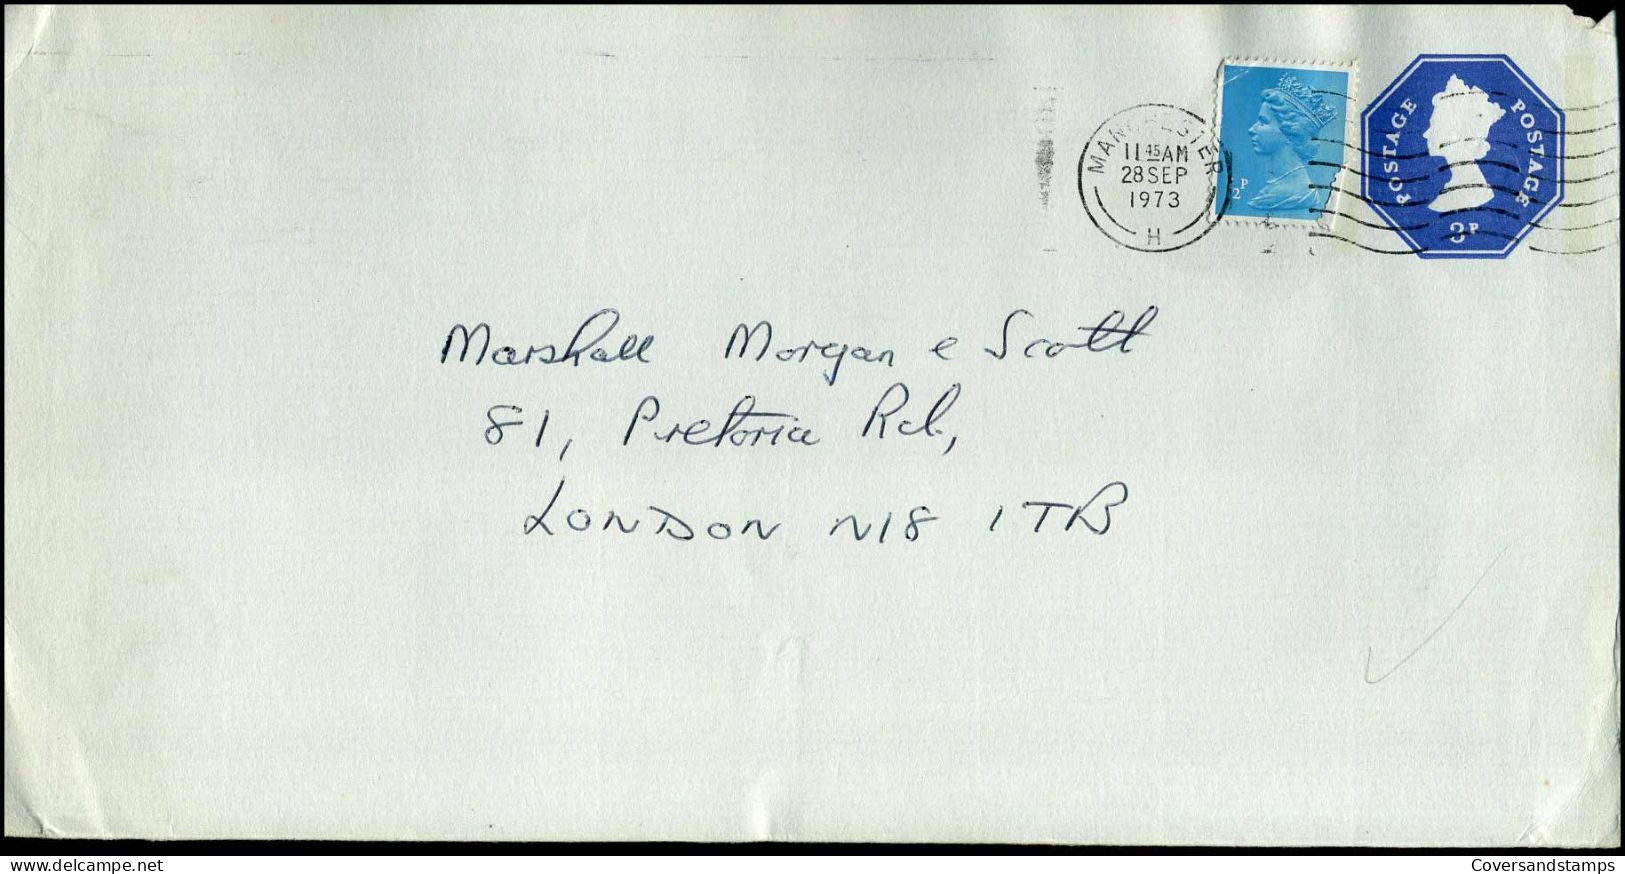 MANCHESTER
11 45 AM
28 SEP
1973
H
½P
POSTAGE POSTAGE
3P
Marshall Morgan & Scott
81, Pretoria Rd.,
LONDON N18 1TB
Coversandstamps